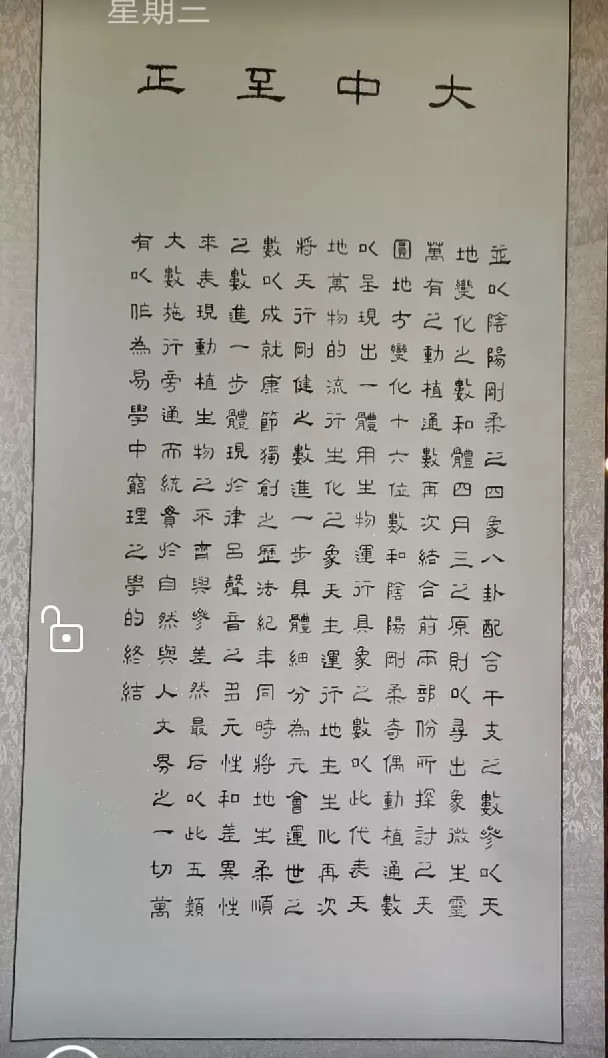 星期三
大中至正
並以陰陽剛柔之四象八卦配合干支之數參以天
地變化之數和體四月三之原則以尋出象微生靈
萬有之動植通數再次結合前兩部份所探討之天
圓地方變化十六位數和陰陽剛柔奇偶動植通數
以呈現出一體用生物運行具象之數以此代表天
地萬物的流行生化之象天主運行地主生化再次
將天行剛健之數進一步具體細分為元會運世之
數以成就康節獨創之歷法紀年同時將地生柔順
之數進一步體現於律呂聲音之多元性和差異性
來表現動植生物之不齊與參差然最后以此五類
大數施行旁通而統貫於自然與人文界之一切萬
有以作為易學中窮理之學的終結